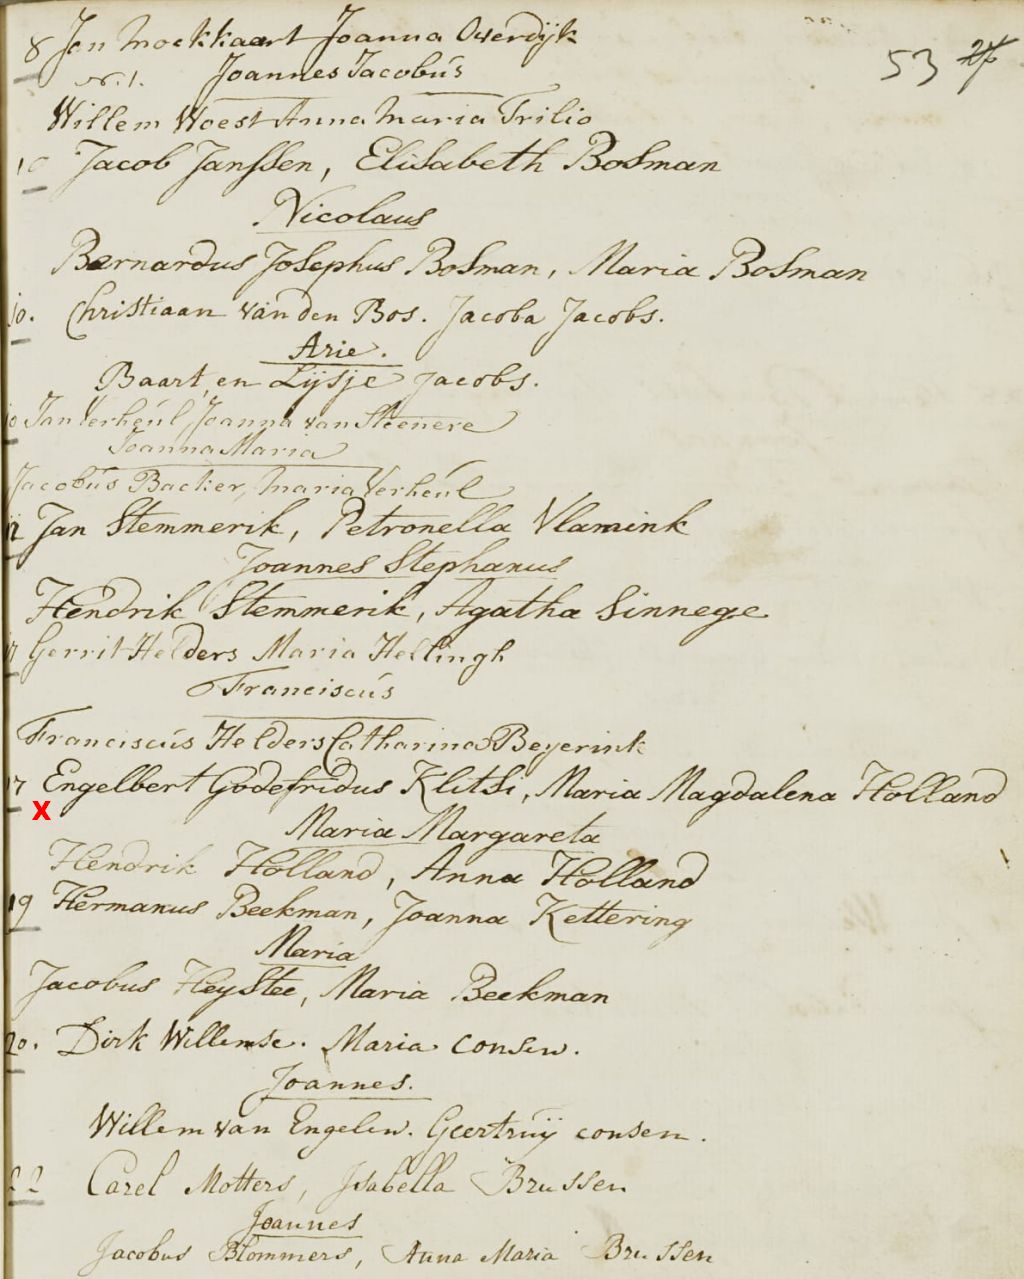 53 27
8 Jan Moekkaert Joanna Overdijk
N. 1. Joannes Jacobús
Willem Woest Anna Maria Trilio
10 Jacob Janssen, Elisabeth Bosman
Nicolaus
Bernardus Josephus Bosman, Maria Bosman
10. Christiaan van den Bos. Jacoba Jacobs.
Arie.
Baart en Lijsje Jacobs.
10 Jan Verheúl Joanna van Steenere
Joanna Maria
Jacobús Backer, Maria Verheúl
12 Jan Stemmerik, Petronella Vlamink
Joannes Stephanus
Hendrik Stemmerik, Agatha Sinnege
17 Gerrit Helders Maria Hellingh
Franciscús
Franciscús Helders Catharina Beyerink
17 Engelbert Godefridus Klitsi, Maria Magdalena Holland
X
Maria Margareta
Hendrik Holland, Anna Holland
19 Hermanus Beekman, Joanna Kettering
Maria
Jacobus Heystee, Maria Beekman
20. Dirk Willemse. Maria Consen.
Joannes.
Willem van Engelen. Geertruij consen.
22 Carel Motters, Isabella Brussen
Joannes
Jacobus Blommers, Anna Maria Brussen